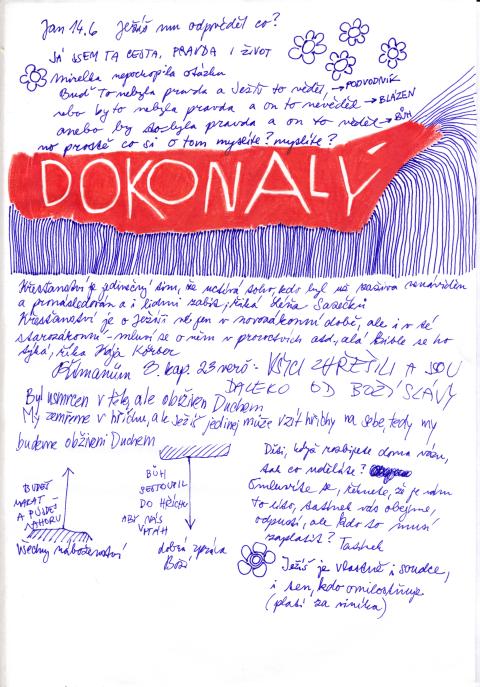 Jan 14.6 Ježíš mu odpověděl co?
JÁ JSEM TA CESTA, PRAVDA I ŽIVOT
Mirelka nepochopila otázku
Buď to nebyla pravda a Ježíš to věděl, → PODVODNÍK
nebo by to nebyla pravda a on to nevěděl → BLÁZEN
anebo by to byla pravda a on to věděl → BŮH
no prostě co si o tom myslíte? myslíte?
DOKONALÝ
Křesťanství je jedinečný tím, že uctívá toho, kdo byl už zaživa nenáviděn
a pronásledován a i lidmi zabit, říká
Křesťanství je o Ježíši nejen v novozákonní době, ale i v té
starozákonní - mluví se o něm v proroctvích atd, celá Bible se ho
týká, říká Körber
Římanům 3. kap. 23 verš - VŠICI ZHŘEŠILI A JSOU
DALEKO OD BOŽÍ SLÁVY
Byl usmrcen v těle, ale obživen Duchem
My zemřeme v hříchu, ale Ježíš jedinej může vzít hříchy na sebe, tedy my
budeme obživeni Duchem
BUDEŠ
MAKAT
A PŮJDEŠ
NAHORU
Všechny náboženství
BŮH
SESTOUPIL
DO HŘÍCHU
ABY NÁS
dobrá zpráva
Boží
Děti, když rozbijete doma vám,
tak co uděláte?
Omluvíte se, řeknete, že je vám
to líto, tatínek vás obejme,
odpustí, ale kdo to musí
zaplatit? Tatínek
Ježíš je vlastně i soudce,
i ten, kdo omilostňuje
(platí za viníka)